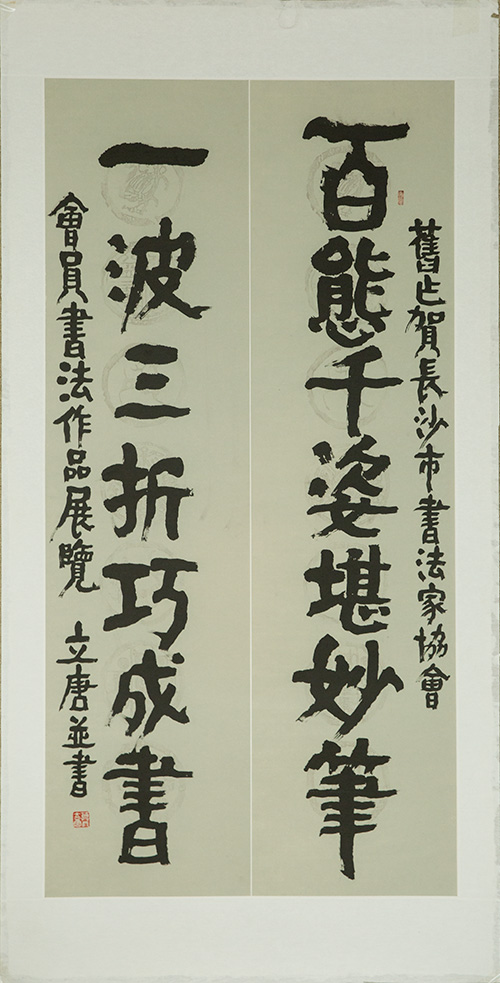 舊乍賀長沙市書法家協會
百態千姿堪妙筆
一波三折巧成書
會員書法作品展覽 立唐並書